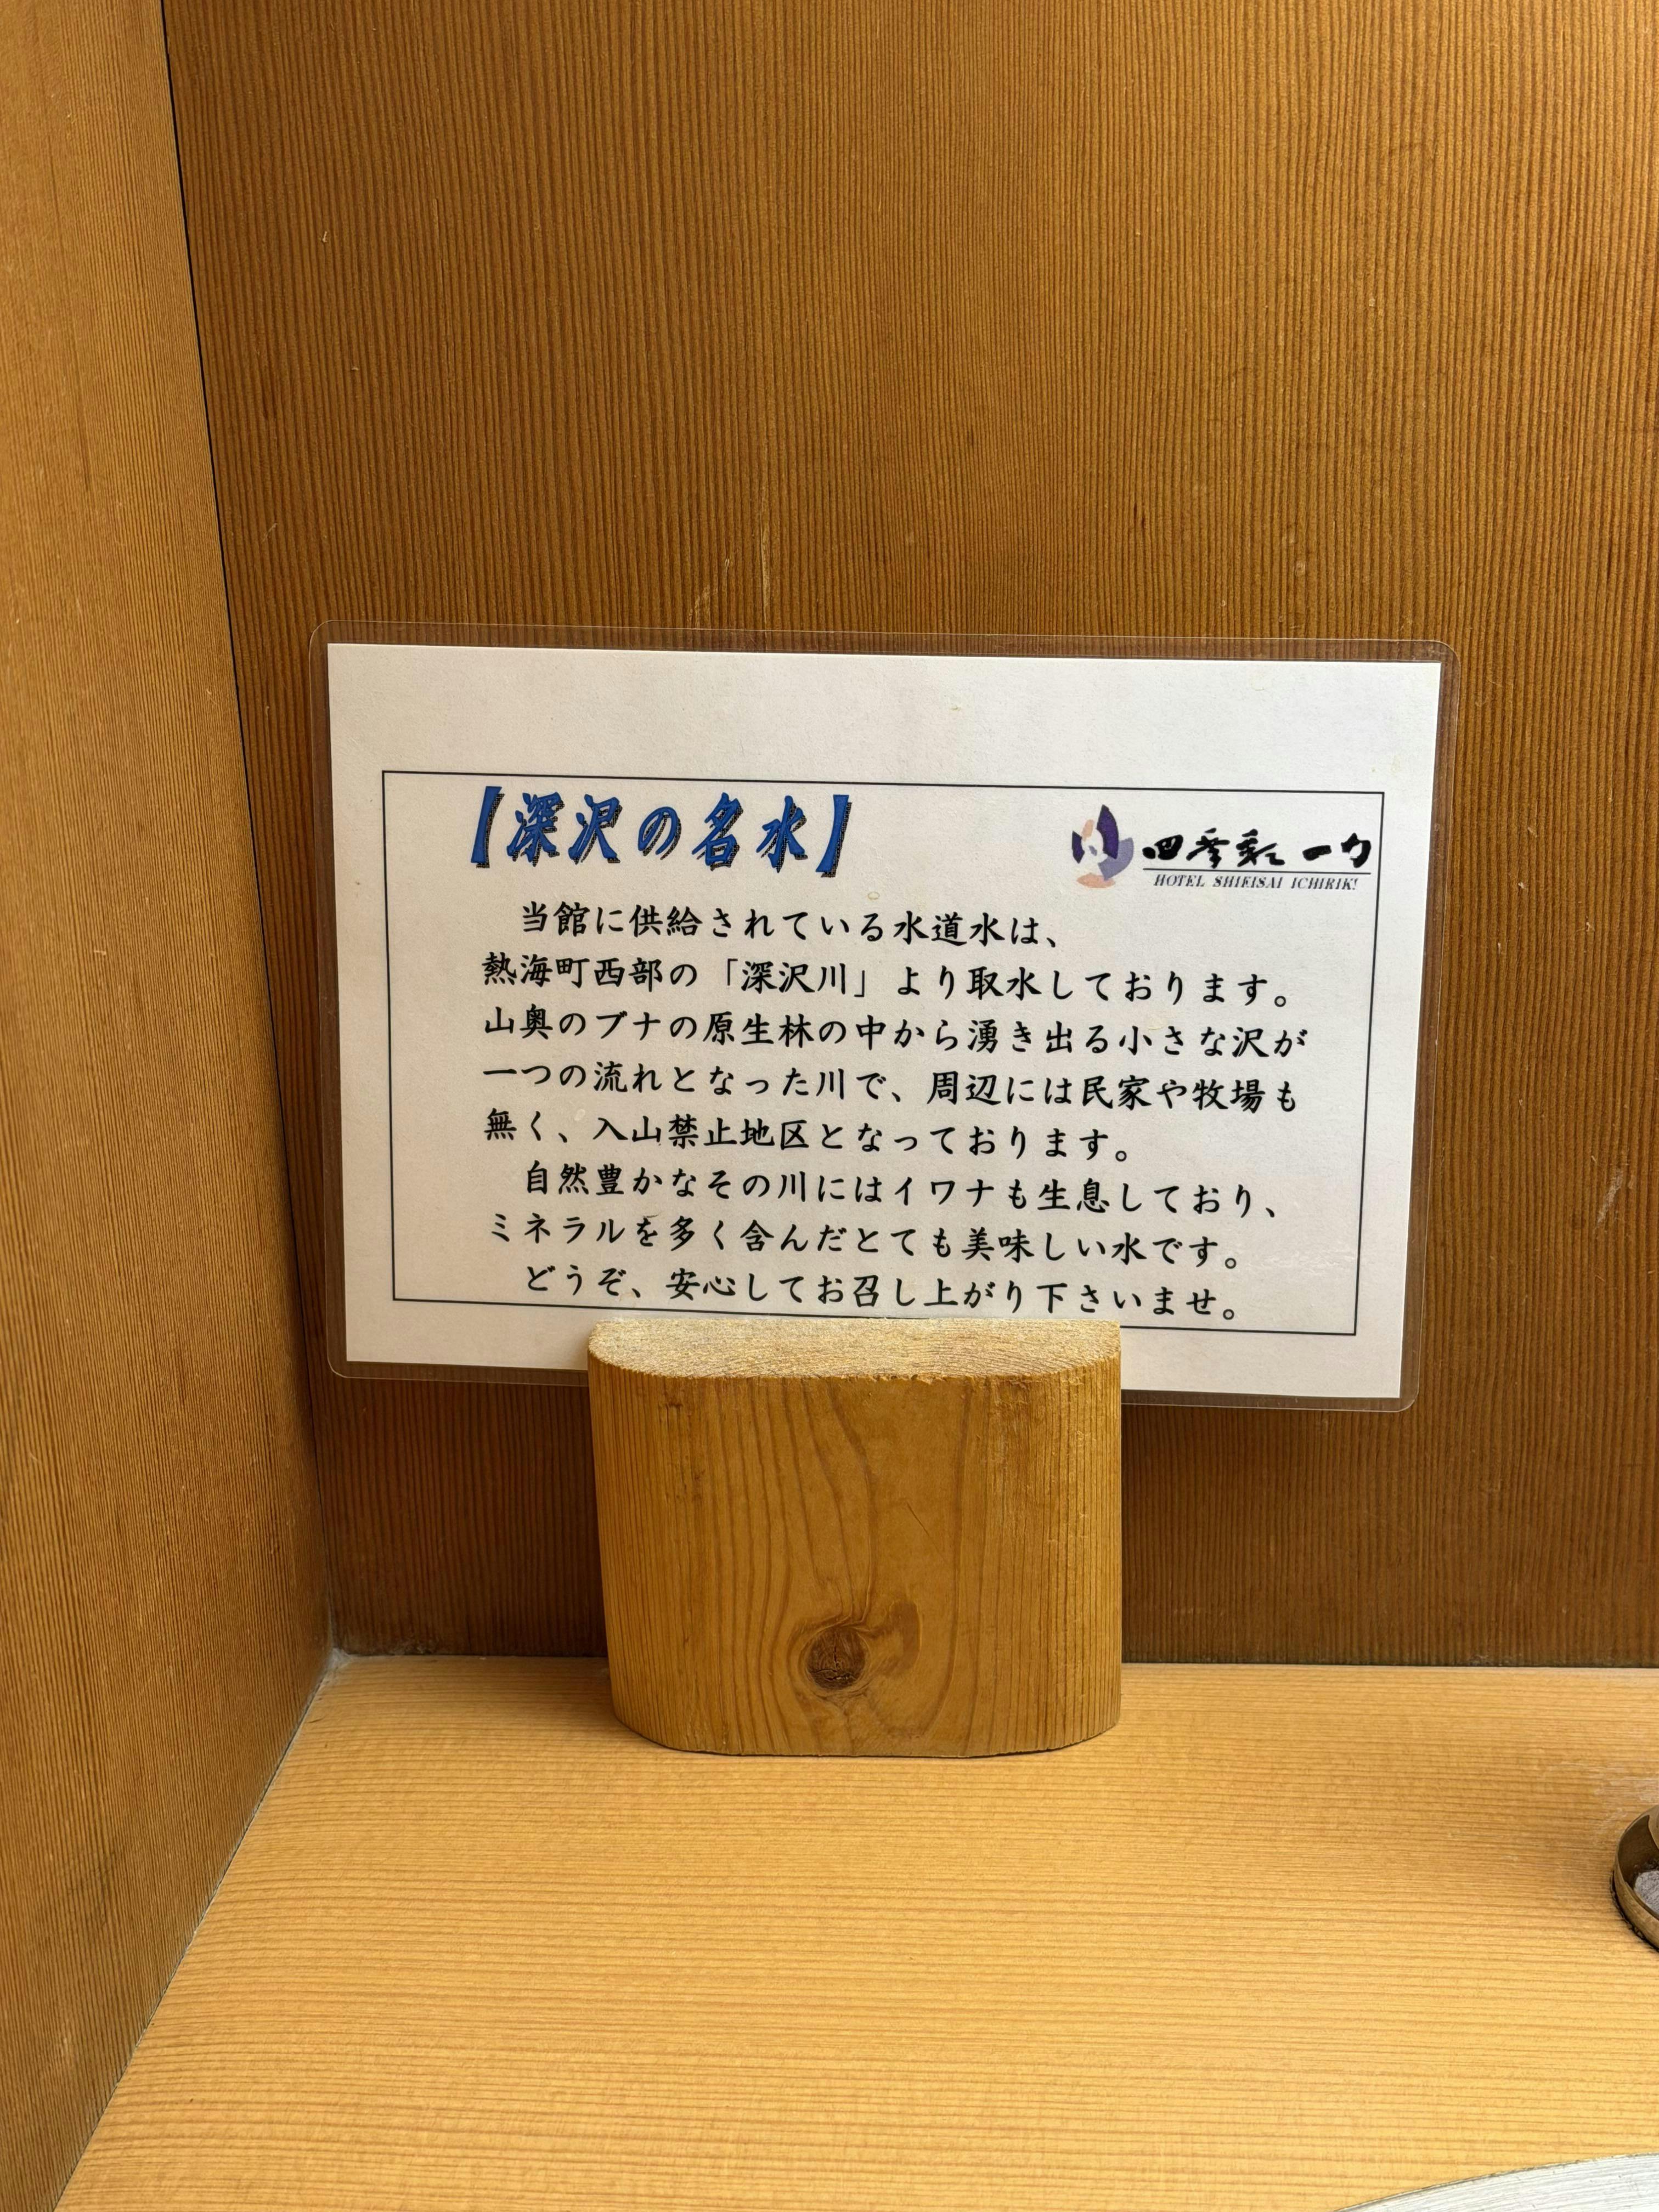 【深沢の名水】
四季彩 一力
HOTEL SHIKISAI ICHIRIKI
当館に供給されている水道水は、
熱海町西部の「深沢川」より取水しております。
山奥のブナの原生林の中から湧き出る小さな沢が
一つの流れとなった川で、周辺には民家や牧場も
無く、入山禁止地区となっております。
自然豊かなその川にはイワナも生息しており、
ミネラルを多く含んだとても美味しい水です。
どうぞ、安心してお召し上がり下さいませ。